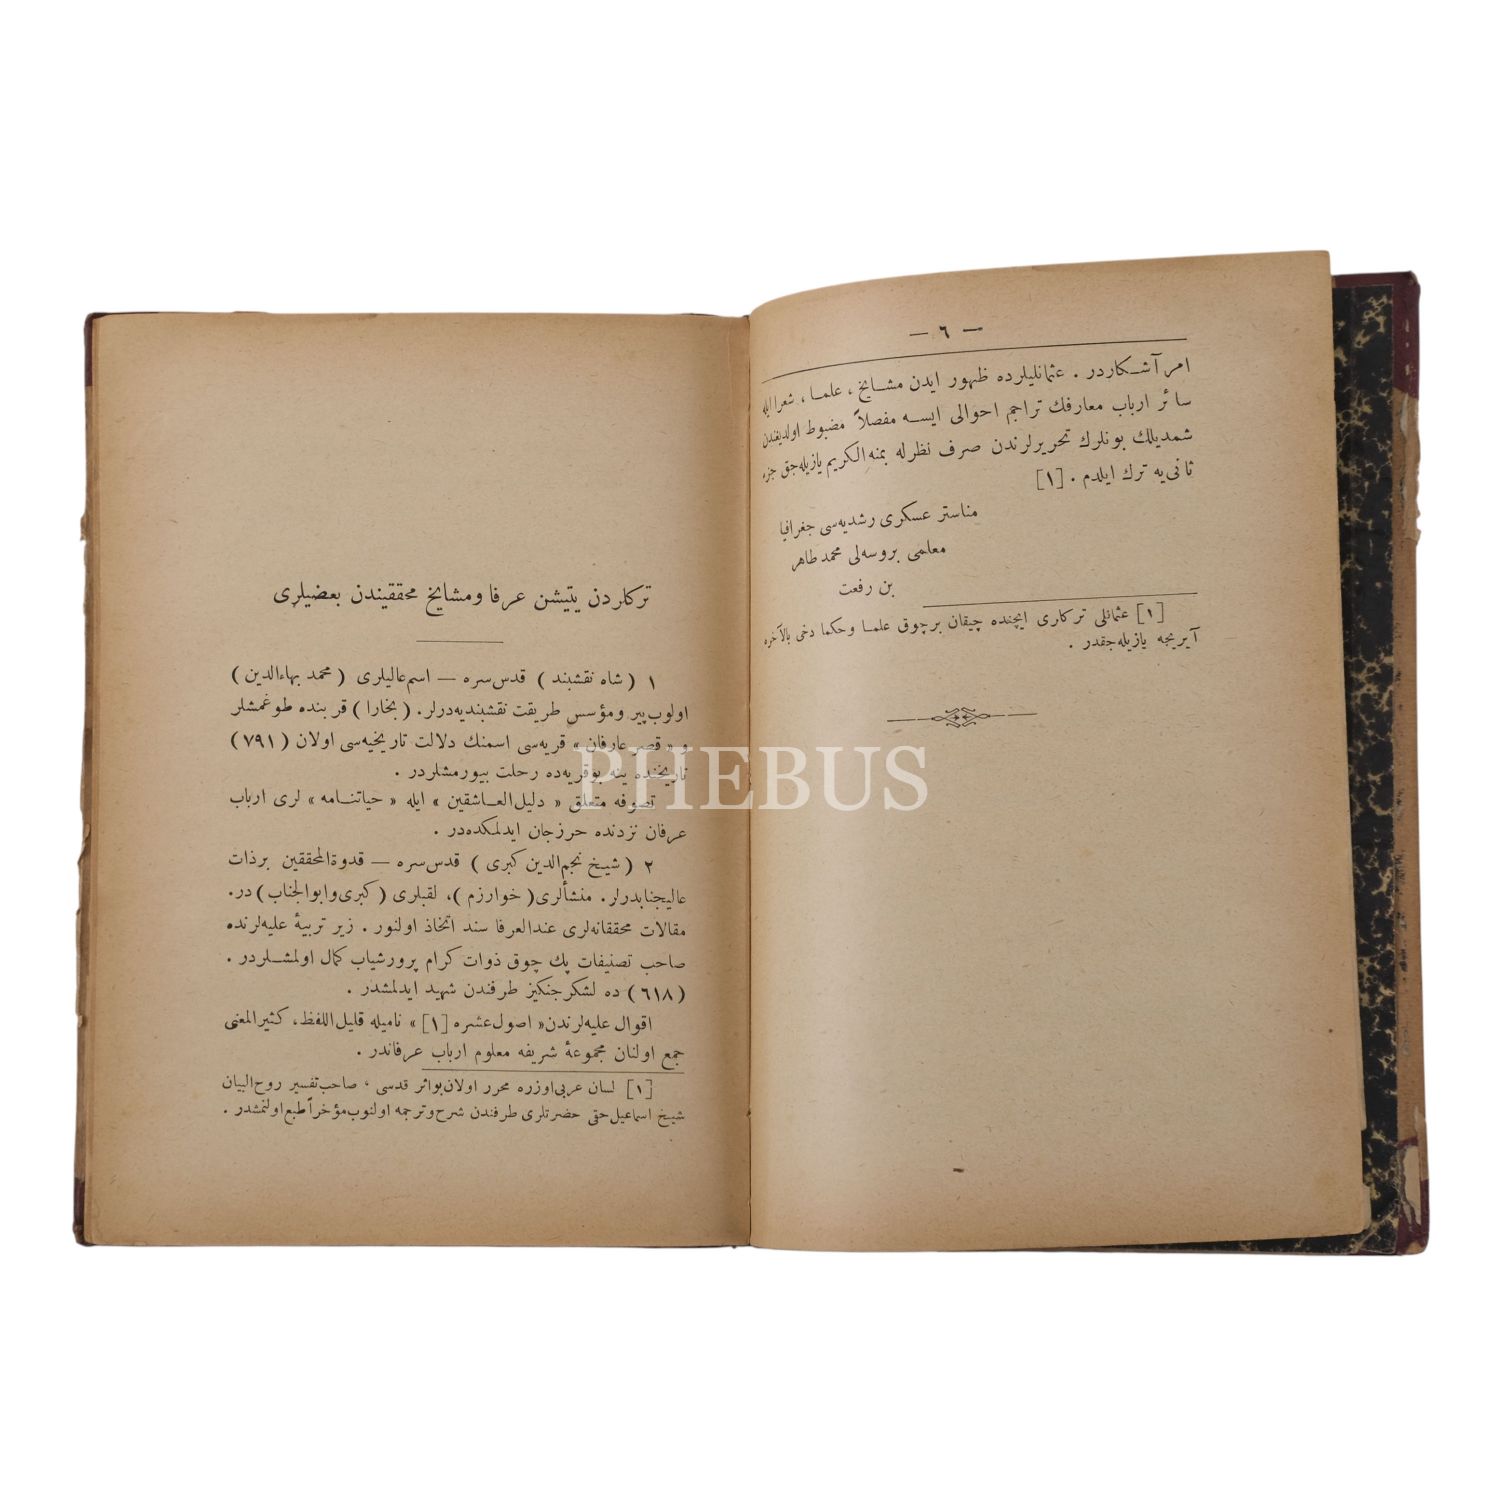 — ٦ —
امر آشكاردر . عثمانليلرده ظهور ايدن مشايخ ، علما ، شعرا ايله
سائر ارباب معارفك تراجم احوالى ايسه مفصلاً مضبوط اولديغندن
شمديلك بونلرك تحريرلرندن صرف نظرله بمنه الكريم يازيله‌جق جزء
ثانى‌يه ترك ايلدم . [١]
مناستر عسكرى رشديه‌سى جغرافيا
معلمى بروسه‌لى محمد طاهر
بن رفعت
[١] عثمانلى تركلرى ايچنده چيقان برچوق علما وحكما دخى بالآخره
آيريجه يازيله‌جقدر .
تركلردن يتيشن عرفا ومشايخ محققيندن بعضيلرى
١ ( شاه نقشبند ) قدس سره — اسم عاليلرى ( محمد بهاءالدين )
اولوب پير ومؤسس طريقت نقشبنديه‌درلر . ( بخارا ) قربنده طوغمشلر
و « قصر عارفان » قريه‌سى اسمنك دلالت تاريخيه‌سى اولان ( ٧٩١ )
تاريخنده ينه بوقريه‌ده رحلت بيورمشلردر .
تصوفه متعلق « دليل العاشقين » ايله « حياتنامه » لرى ارباب
عرفان نزدنده حرزجان ايدلمكده‌در .
٢ ( شيخ نجم‌الدين كبرى ) قدس سره — قدوة المحققين برذات
عاليجنابدرلر . منشألرى ( خوارزم ) ، لقبلرى ( كبرى وابوالجناب ) در.
مقالات محققانه‌لرى عندالعرفا سند اتخاذ اولنور . زير تربيۀ عليه‌لرنده
صاحب تصنيفات پك چوق ذوات كرام پرورشياب كمال اولمشلردر .
( ٦١٨ ) ده لشكر جنكيز طرفندن شهيد ايدلمشدر .
اقوال عليه‌لرندن « اصول عشره [١] » ناميله قليل اللفظ ، كثيرالمعنى
جمع اولنان مجموعۀ شريفه معلوم ارباب عرفاندر .
[١] لسان عربى اوزره محرر اولان بواثر قدسى ، صاحب تفسير روح البيان
شيخ اسماعيل حقى حضرتلرى طرفندن شرح وترجمه اولنوب مؤخراً طبع اولنمشدر .
PHEBUS